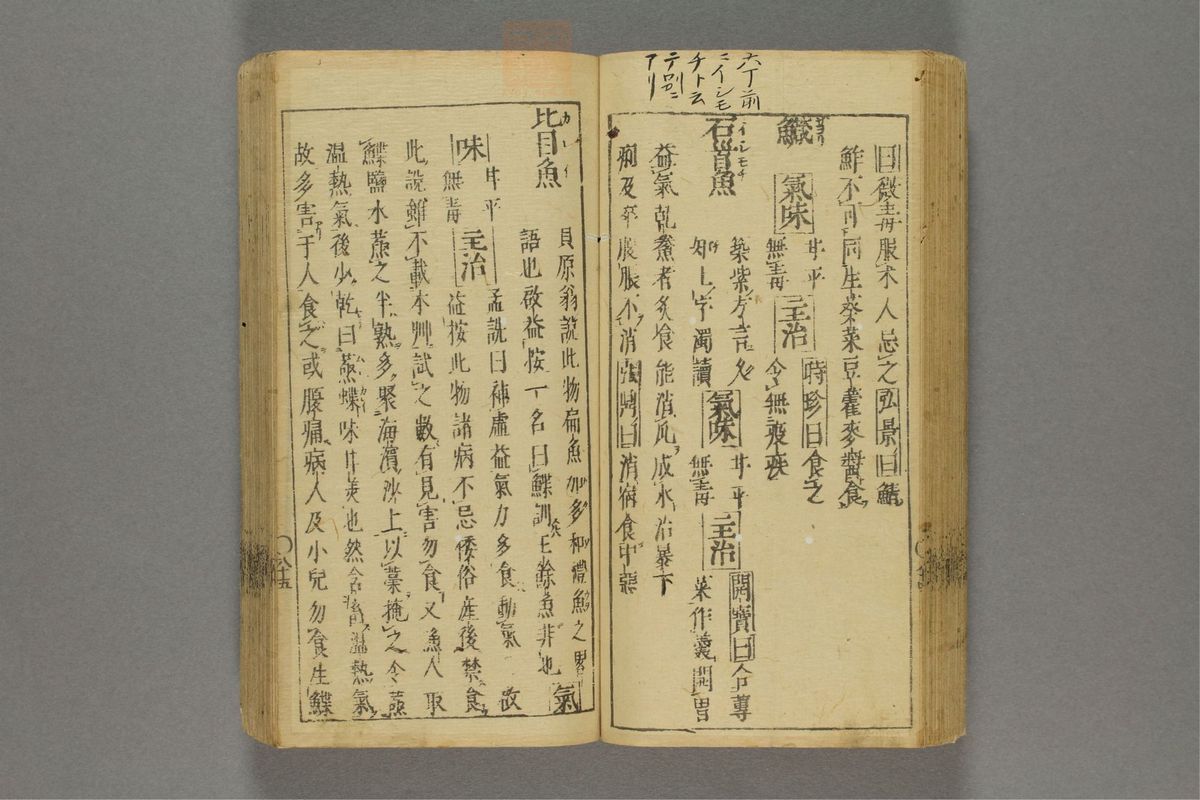 六丁前
ニイシモ
チト云
テ別ニ
アリ
曰微毒服术人忌之弘景曰鯖
鮓不可同生葵菜豆藿麥醬食
鱵 氣味 甘平無毒 主治 時珍曰食之
令無疫
石首魚 イシモチ 築紫方言久
知上字濁讀 氣味 甘平無毒 主治 開寶曰合蓴
菜作羹開胃
益氣乾鯗者炙食能消瓜成水治暴下
痢及卒腹脹不消張鼎曰消宿食中惡
比目魚 カレイ 貝原翁說此物扁魚加多和禮魚之畧
語也啟益按一名曰鰈訓王餘魚非也 氣
味 甘平無毒 主治 孟詵曰補虛益氣力多食動氣 故
益按此物諸病不忌倭俗産後禁食
此說雖不載本艸試之數有見害勿食又魚人取
鰈鹽水蒸之半熟多聚海濱沙上以藁掩之令蒸
温熱氣後少乾曰蒸鰈味甘美也然含濕熱氣
故多害于人食之或腹痛病人及小兒勿食生鰈
八十五